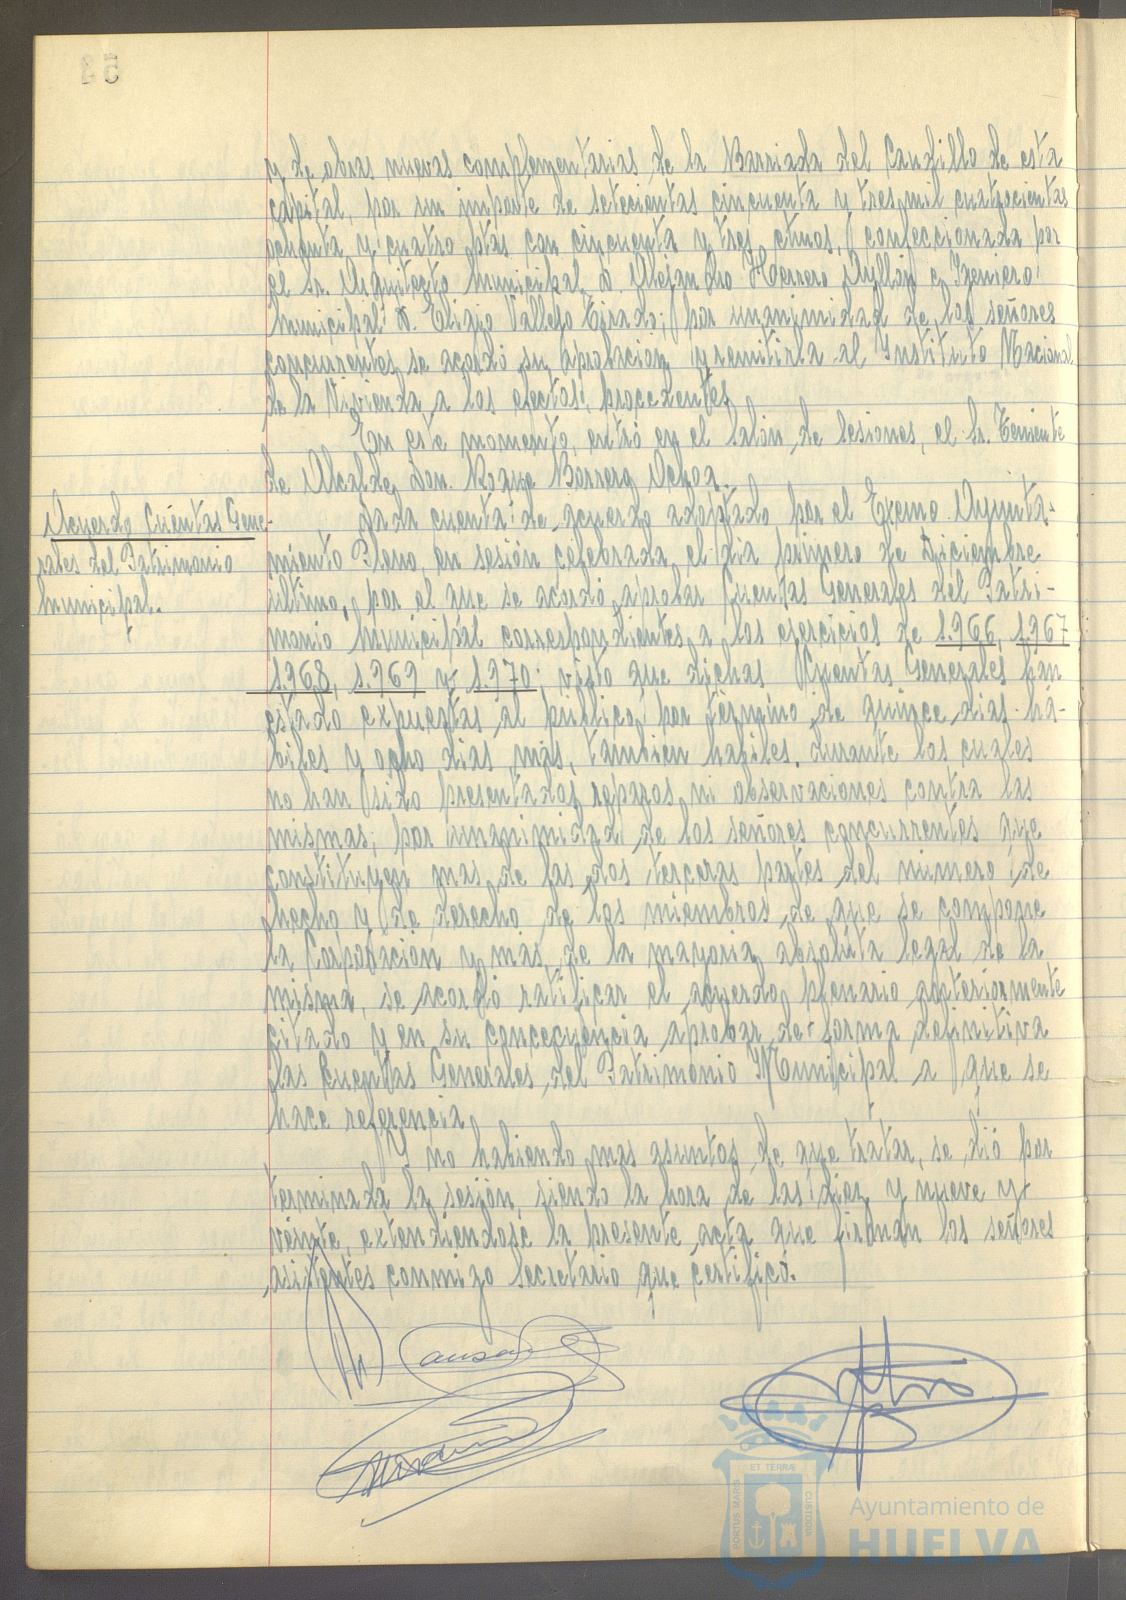 y de obras nuevas complementarias de la Barriada del Caudillo de esta
capital, por un importe de setecientas cincuenta y tres mil cuatrocientas
ochenta y cuatro ptas con cincuenta y tres ctmos, confeccionada por
el Sr. Arquitecto Municipal D. Alejandro Herrero Ayllón e Igeniero
Municipal D. Eligio Vallejo Tirado; por unanimidad de los señores
concurrentes se acordó su aprobación y remitirla al Instituto Nacional
de la Vivienda a los efectos procedentes
En este momento, entró en el Salón de Sesiones, el Sr. Teniente
de Alcalde, Don. Roque Barrero Ochoa.
Acuerdo Cuentas Gene-
rales del Patrimonio
Municipal.
Dada cuenta de acuerdo adoptado por el Excmo. Ayunta-
miento Pleno, en sesión celebrada el día primero de Diciembre
último, por el que se acordó aprobar Cuentas Generales del Patri-
monio Municipal correspondientes a los ejercicios de 1.966, 1.967
1.968, 1.969 y 1.970; visto que dichas Cuentas Generales han
estado expuestas al público, por término de quince dias há-
biles y ocho dias más, tambien habiles, durante los cuales
no han sido presentados reparos ni observaciones contra las
mismas; por unanimidad de los señores concurrentes que
constituyen mas de las dos terceras partes del número de
hecho y de derecho de los miembros de que se compone
la Corporación y más de la mayoria absoluta legal de la
misma, se acordó ratificar el acuerdo plenario anteriormente
citado y en su concecuencia aprobar de forma definitiva
las Cuentas Generales del Patrimonio Municipal a que se
hace referencia.
Y no habiendo mas asuntos de que tratar, se dió por
terminada la sesión, siendo la hora de las diez y nueve y
veinte, extendiendose la presente acta que firman los señores
asistentes conmigo Secretario que certifico.
ET TERRÆ
PORTUS MARIS
CUSTODIA
Ayuntamiento de
HUELVA